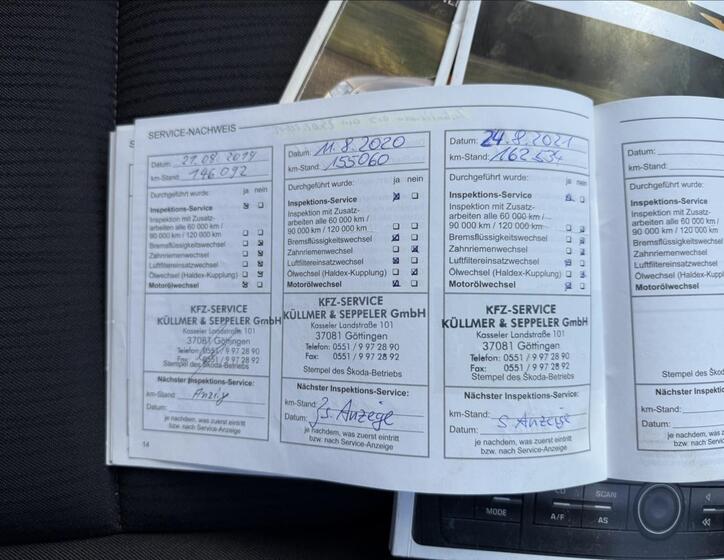 SERVICE-NACHWEIS
Datum: 21.08.2019
km-Stand: 146 092
Durchgeführt wurde: ja nein
Inspektions-Service
Inspektion mit Zusatz-
arbeiten alle 60 000 km /
90 000 km / 120 000 km
Bremsflüssigkeitswechsel
Zahnriemenwechsel
Luftfiltereinsatzwechsel
Ölwechsel (Haldex-Kupplung)
Motorölwechsel
KFZ-SERVICE
KÜLLMER & SEPPELER GmbH
Kasseler Landstraße 101
37081 Göttingen
Telefon: 0551 / 9 97 28 90
Fax: 0551 / 9 97 28 92
Stempel des Škoda-Betriebs
Nächster Inspektions-Service:
km-Stand: Anzeig
Datum:
je nachdem, was zuerst eintritt
bzw. nach Service-Anzeige
14
Datum: 11.8.2020
km-Stand: 155060
Durchgeführt wurde: ja nein
Inspektions-Service
Inspektion mit Zusatz-
arbeiten alle 60 000 km /
90 000 km / 120 000 km
Bremsflüssigkeitswechsel
Zahnriemenwechsel
Luftfiltereinsatzwechsel
Ölwechsel (Haldex-Kupplung)
Motorölwechsel
KFZ-SERVICE
KÜLLMER & SEPPELER GmbH
Kasseler Landstraße 101
37081 Göttingen
Telefon: 0551 / 9 97 28 90
Fax: 0551 / 9 97 28 92
Stempel des Škoda-Betriebs
Nächster Inspektions-Service:
km-Stand:
Datum: s. Anzeige
je nachdem, was zuerst eintritt
bzw. nach Service-Anzeige
Datum: 24.8.2021
km-Stand: 162534
Durchgeführt wurde: ja nein
Inspektions-Service
Inspektion mit Zusatz-
arbeiten alle 60 000 km /
90 000 km / 120 000 km
Bremsflüssigkeitswechsel
Zahnriemenwechsel
Luftfiltereinsatzwechsel
Ölwechsel (Haldex-Kupplung)
Motorölwechsel
KFZ-SERVICE
KÜLLMER & SEPPELER GmbH
Kasseler Landstraße 101
37081 Göttingen
Telefon: 0551 / 9 97 28 90
Fax: 0551 / 9 97 28 92
Stempel des Škoda-Betriebs
Nächster Inspektions-Service:
km-Stand:
Datum: S. Anzeige
je nachdem, was zuerst eintritt
bzw. nach Service-Anzeige
Datum:
km-Stand:
Durchgeführt wurde:
Inspektions-Service
Inspektion mit Zusatz-
arbeiten alle 60 000 km /
90 000 km / 120 000 km
Bremsflüssigkeitswechsel
Zahnriemenwechsel
Luftfiltereinsatzwechsel
Ölwechsel (Haldex-Kupplung)
Motorölwechsel
Stempel des Škod
Nächster Inspektion
km-Stand:
Datum:
je nachdem, was
bzw. nach Serv
MODE
A/F
SCAN
AS